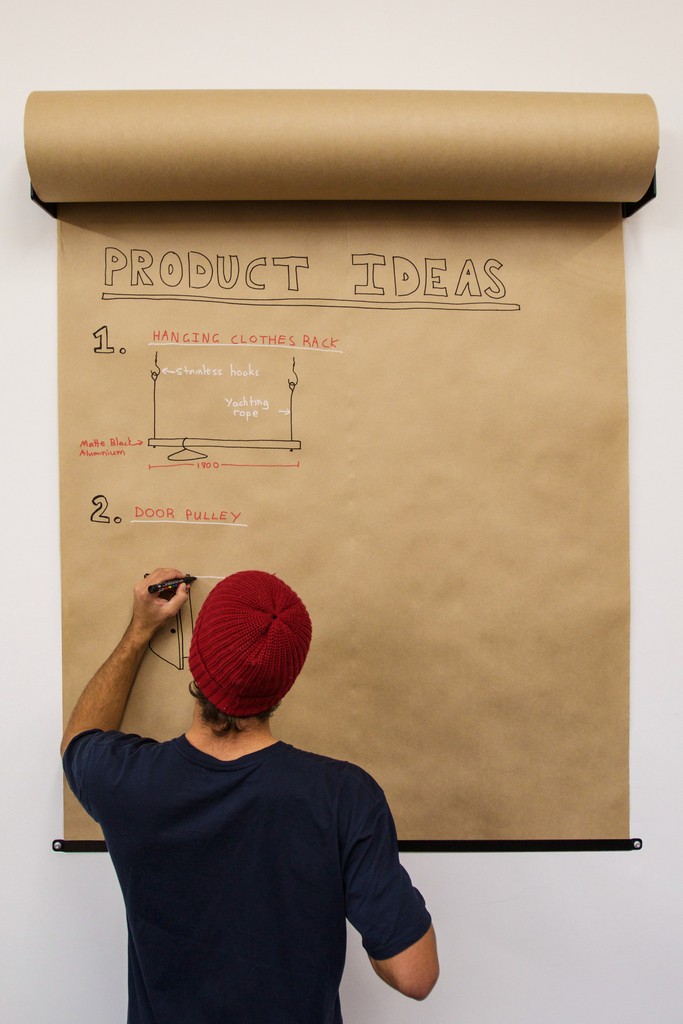 PRODUCT IDEAS
1. HANGING CLOTHES RACK
stainless hooks
Yachting
rope
Matte Black
Aluminium
1800
2. DOOR PULLEY